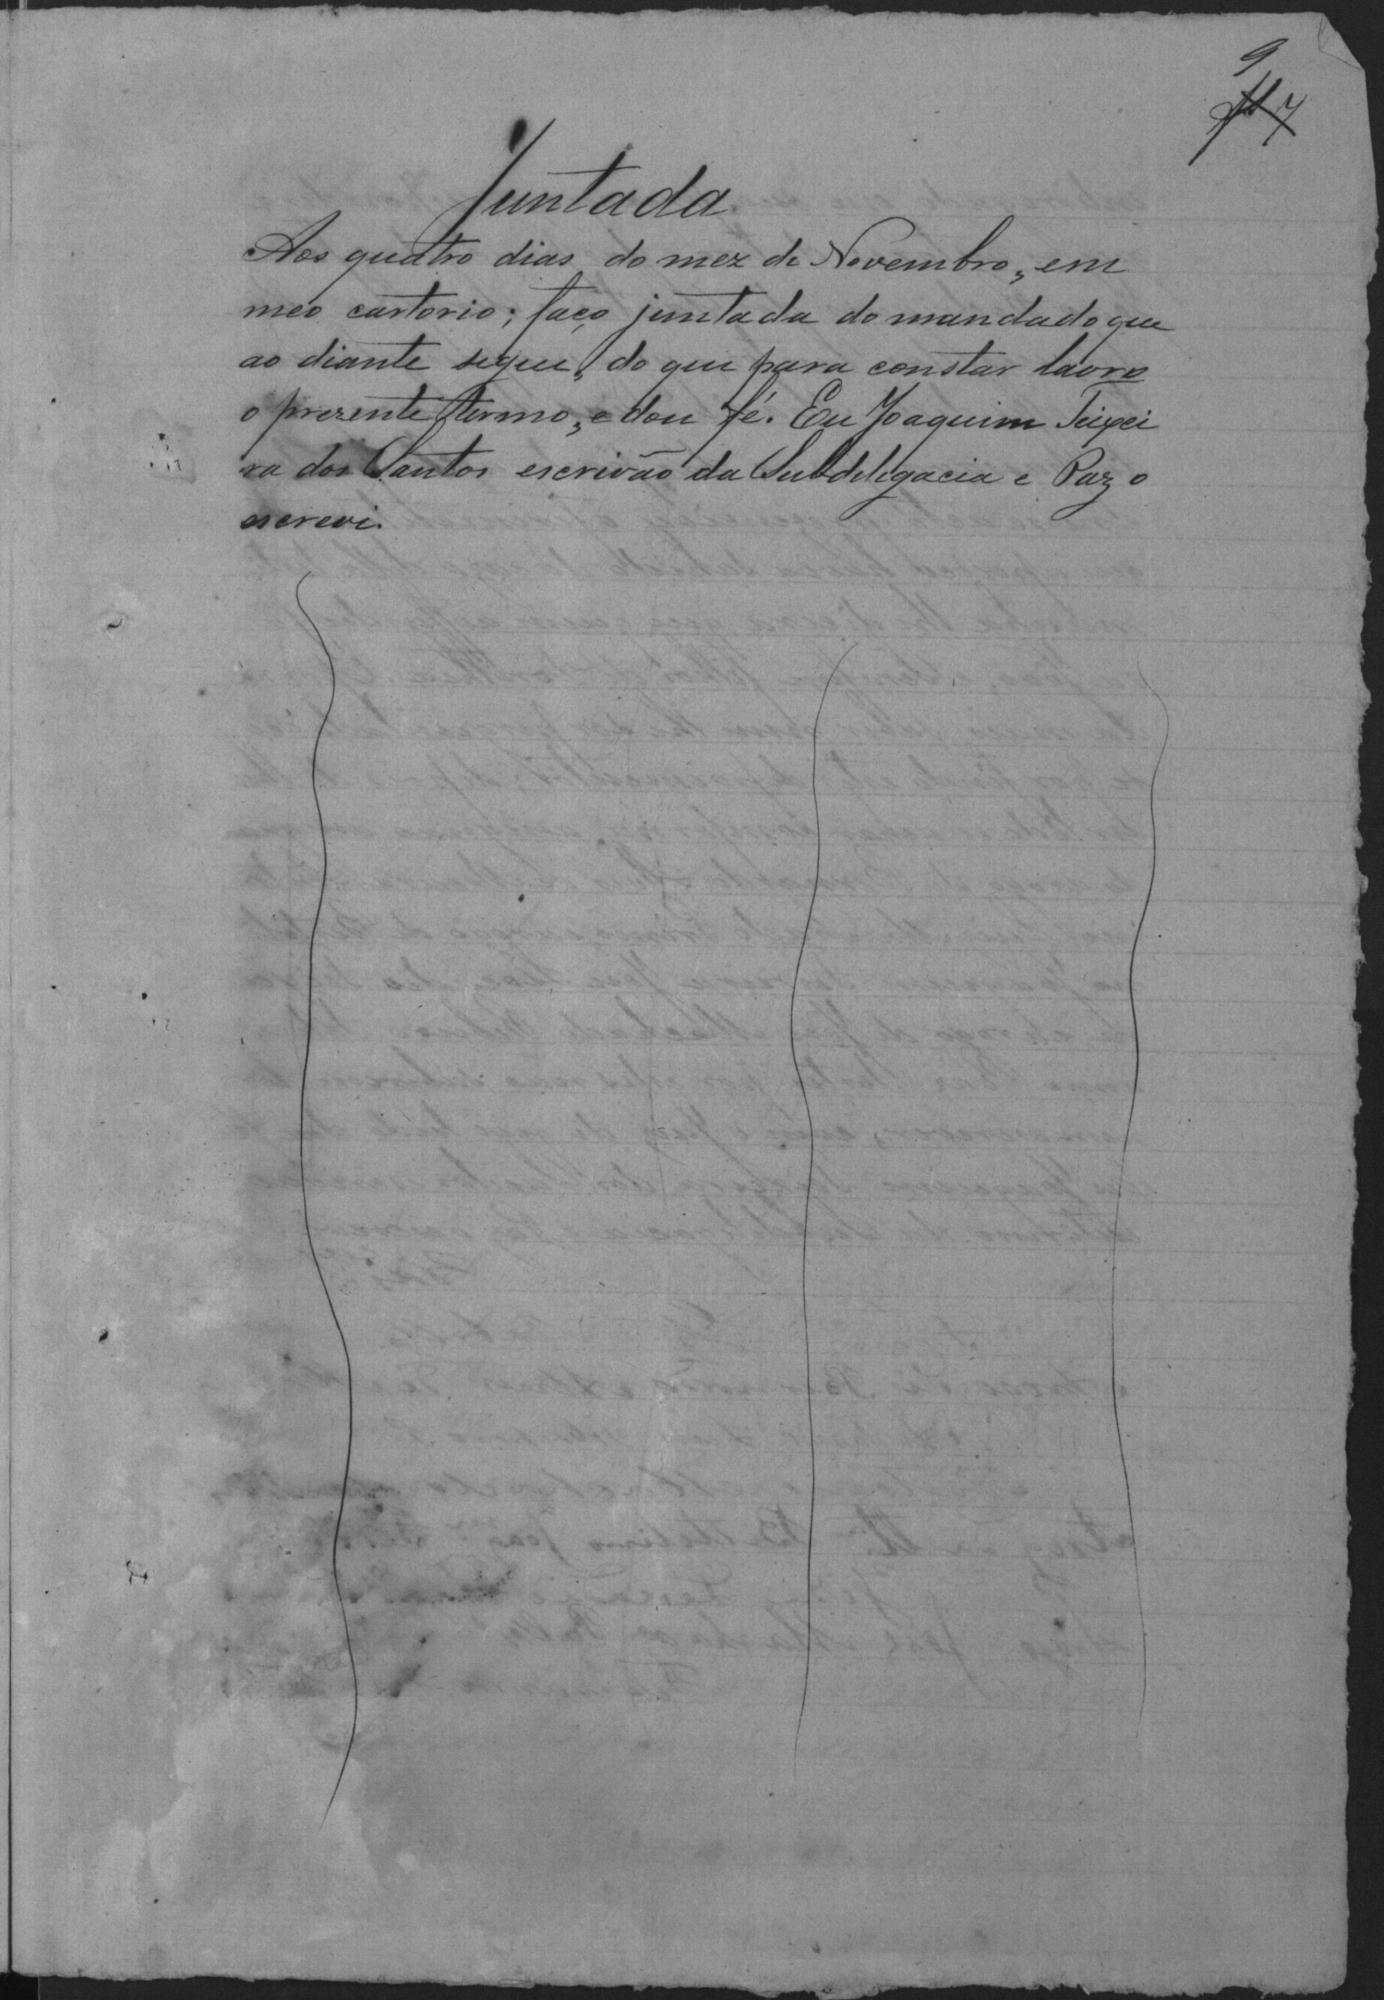 9
fl 7
Juntada
Aos quatro dias do mez de Novembro, em
meo cartorio; faço juntada do mandado que
ao diante segue, do que para constar lavro
o prezente termo, e dou fé. Eu Joaquim Teixei
ra dos Santos escrivão da Subdelegacia e Paz o
escrevi.